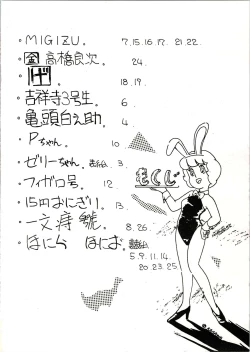 ・MIGIZU. 7.15.16.17. 21.22.
・金 高橋良次. 24.
・げ. 18.19.
・吉祥寺3号生. 6.
・亀頭白之助. 4.
・Pちゃん. 10.
・ゼリーちゃん. 3.
・フィガロ号. 12.
・15円おにぎり. 13.
・一文 號. 8.26.
・ほにゃらほにお.
5.9.11.14.
20.23.25.
もくじ